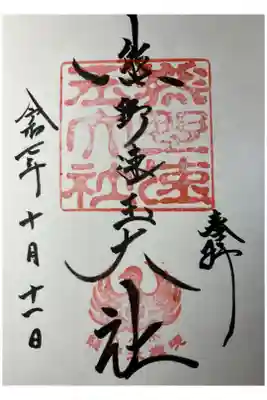 奉拝
熊野速玉大社
令和七年十月十一日
熊野速
玉大社